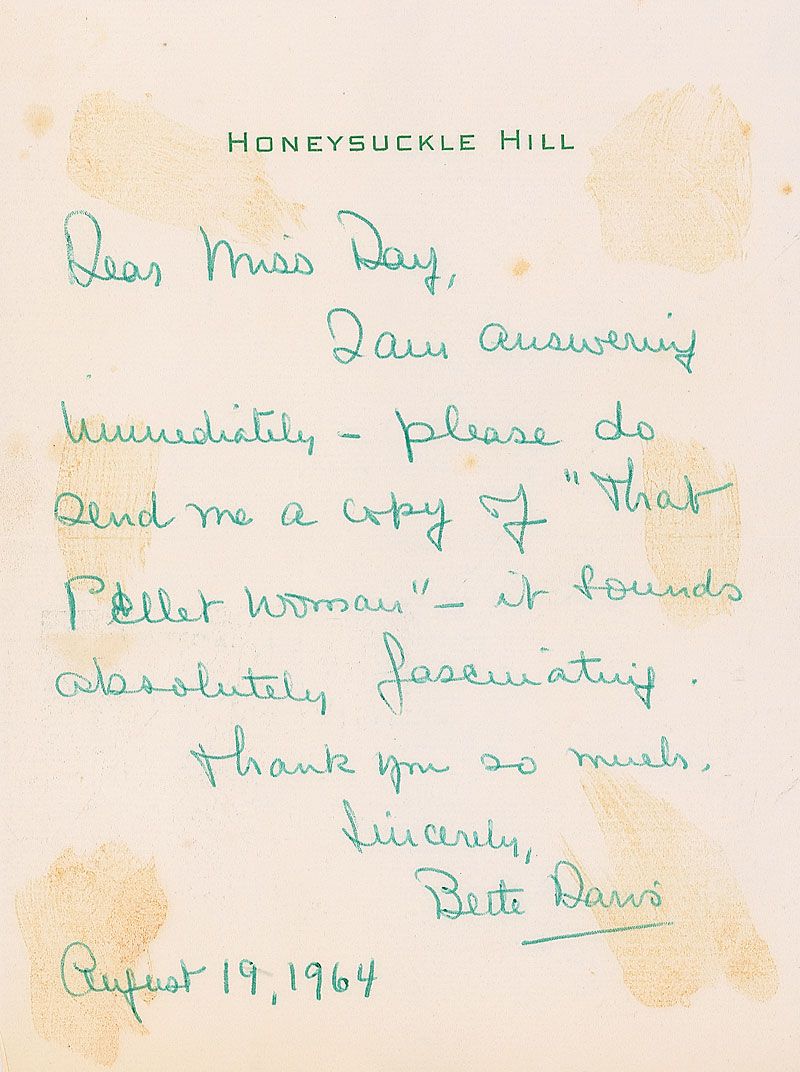 HONEYSUCKLE HILL
Dear Miss Day,
I am answering
immediately – please do
send me a copy of "That
Pellet Woman" – it sounds
absolutely fascinating.
Thank you so much.
Sincerely,
Bette Davis
August 19, 1964